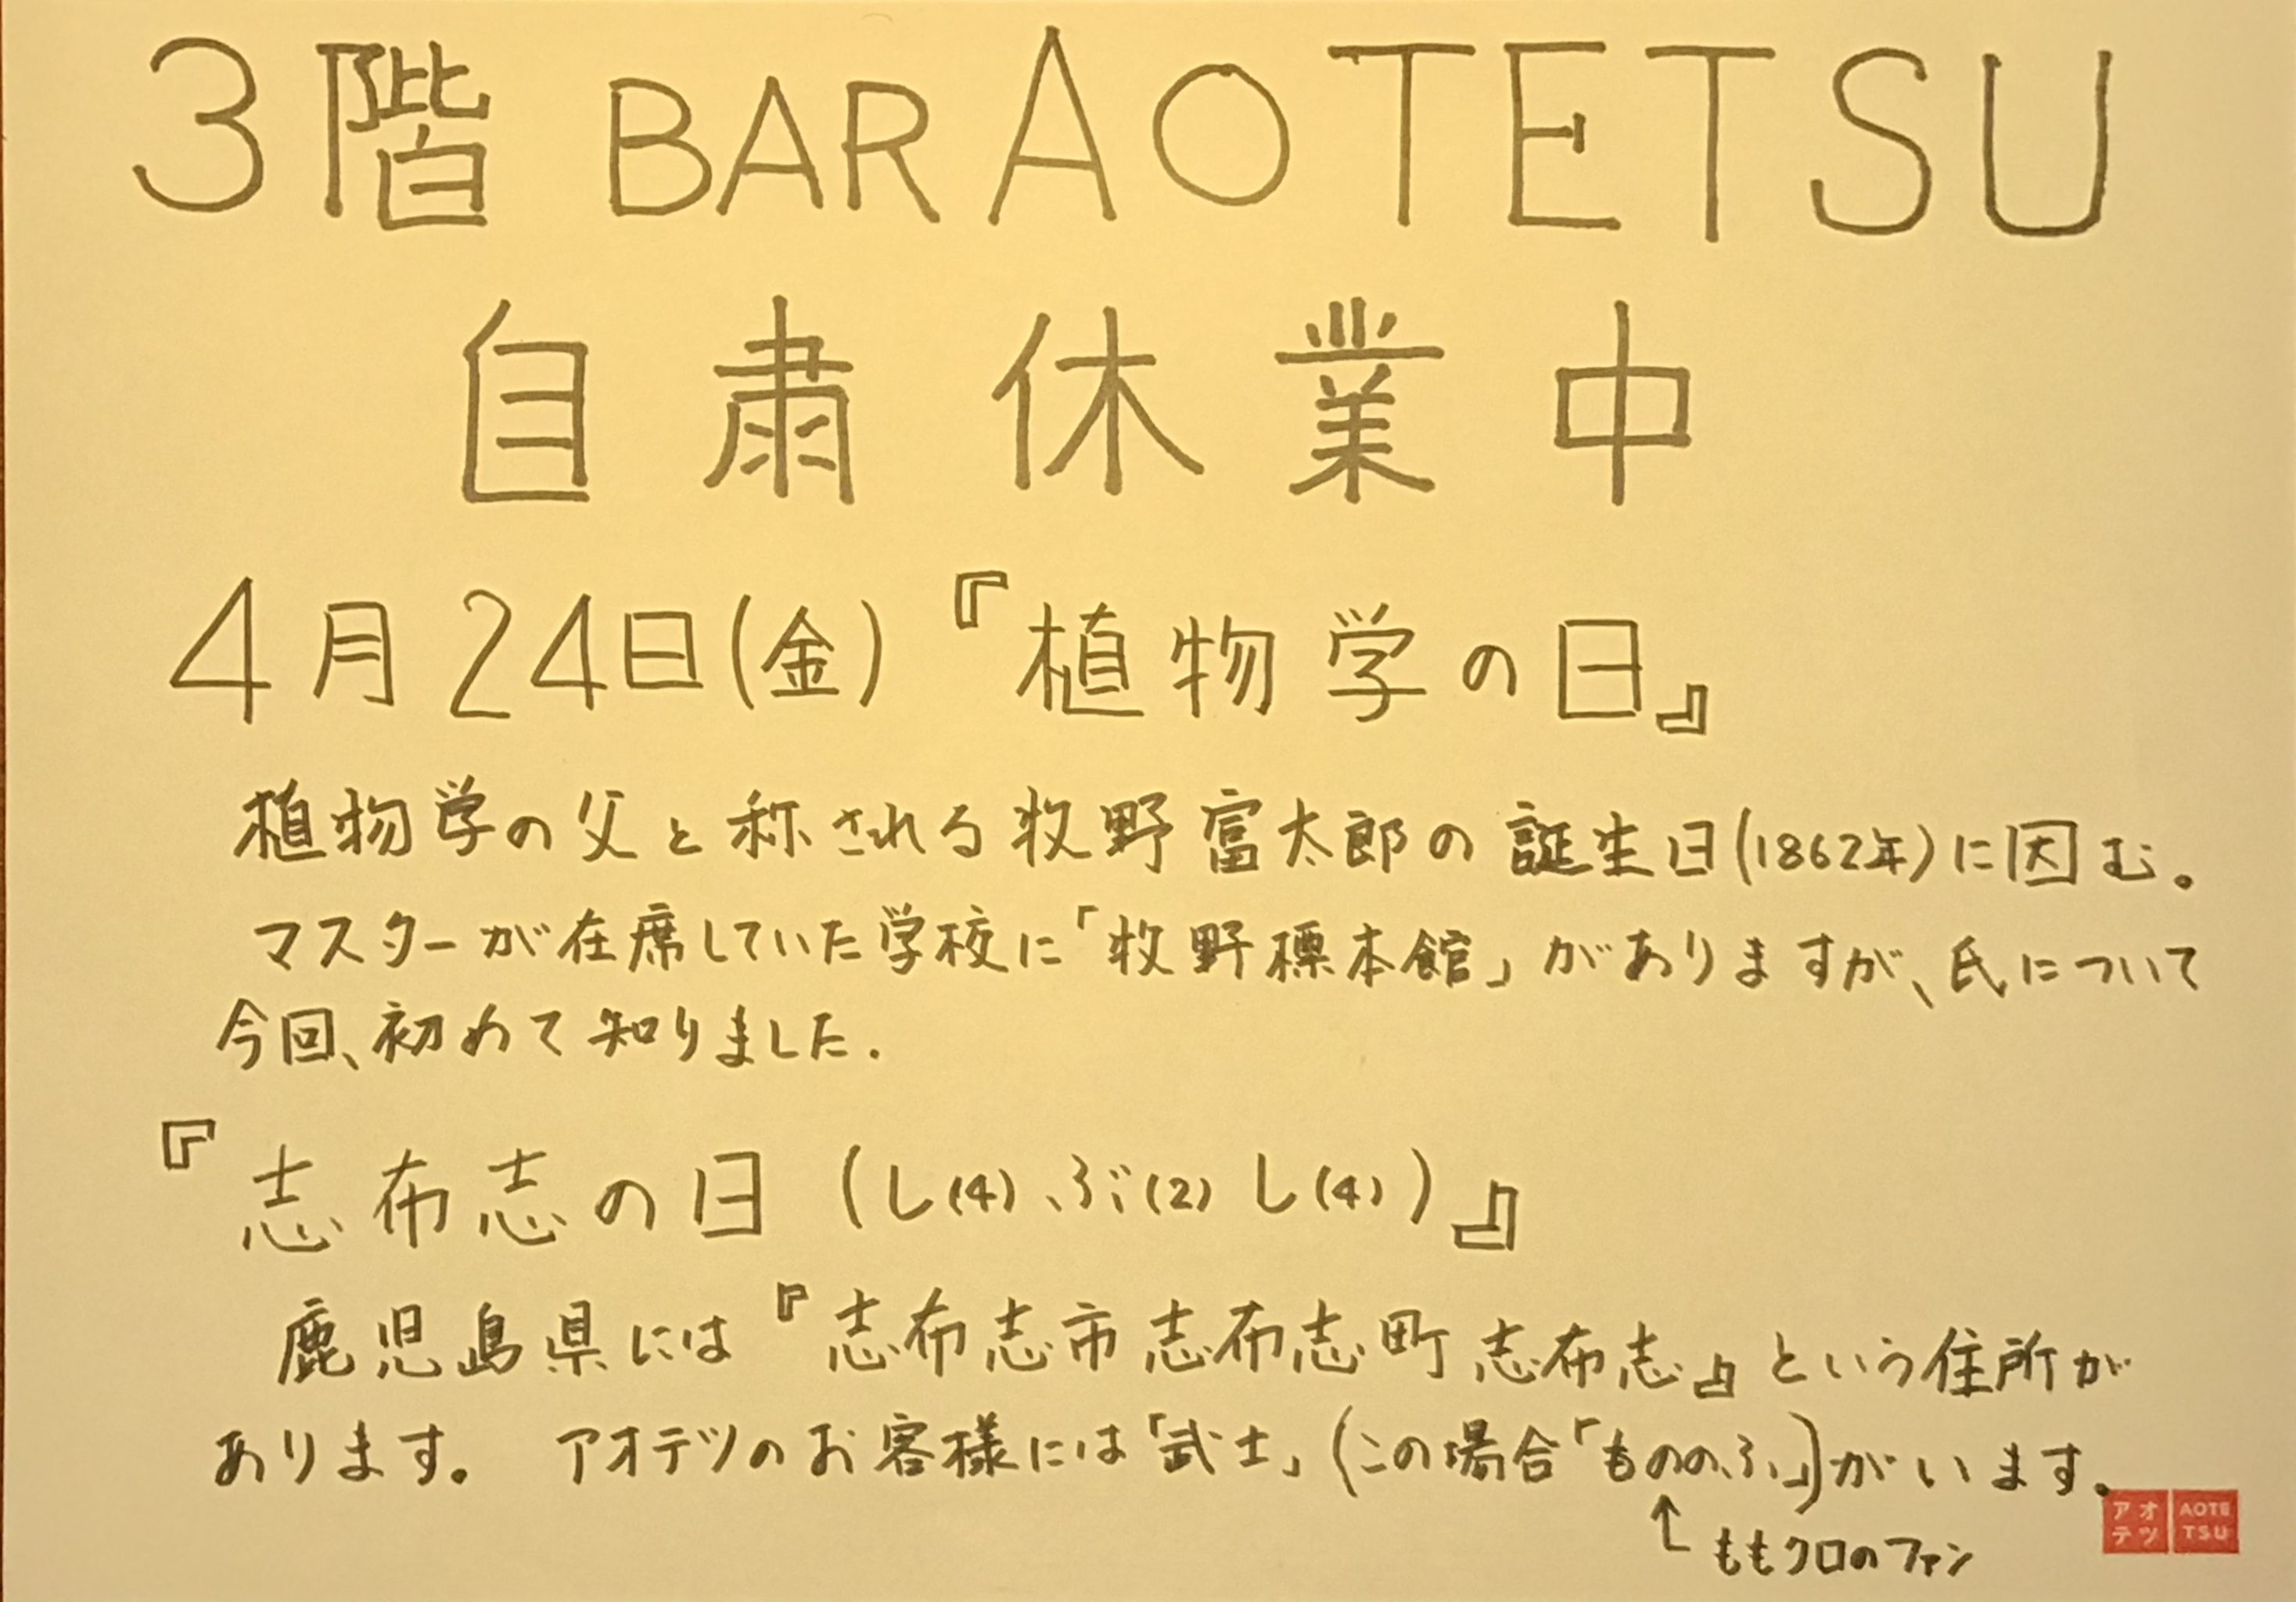 3階 BAR AOTETSU
自粛休業中
4月24日(金)『植物学の日』
植物学の父と称される牧野富太郎の誕生日(1862年)に因む。
マスターが在席していた学校に「牧野標本館」がありますが、氏について
今回、初めて知りました.
『志布志の日(し(4)ぶ(2)し(4))』
鹿児島県には『志布志市志布志町志布志』という住所が
あります。 アオテツのお客様には「武士」(この場合「もののふ」)がいます。
↑ももクロのファン
アオ
テツ
AOTE
TSU